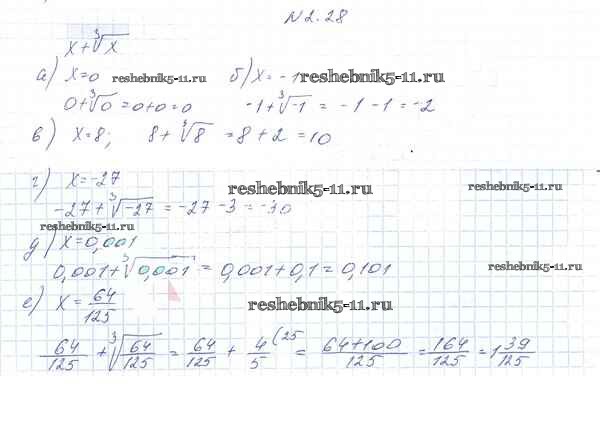 N2.28
x+∛x
а) x=0 reshebnik5-11.ru б) x=-1 reshebnik5-11.ru
0+∛0 =0+0=0 -1+∛-1 = -1-1=-2
в) x=8; 8+∛8 =8+2=10
г) x=-27 reshebnik5-11.ru reshebnik5-11.ru
-27+∛-27 = -27-3=-30
reshebnik5-11.ru
д) x=0,001
0,001+∛0,001 = 0,001+0,1=0,101 reshebnik5-11.ru
е) x=64/125 reshebnik5-11.ru
64/125 + ∛64/125 = 64/125 + 4/5(25 = 64+100/125 = 164/125 = 1 39/125